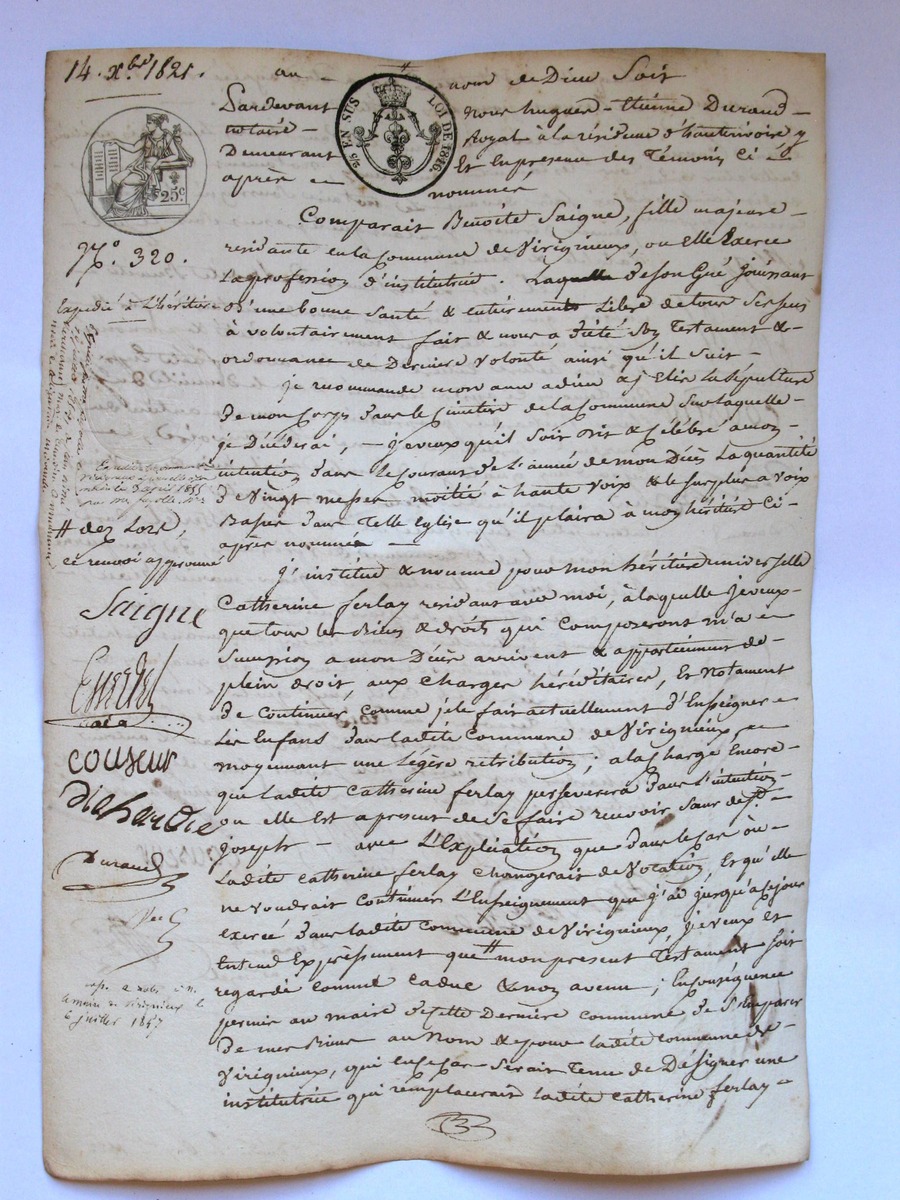 14. Xbre 1821.
au nom de Dieu Soit
Pardevant nous hugues-Etienne Durand
notaire Royal à la résidence d'hauterivoire y
Demeurant Et En présence des Témoins Ci
après nommés
25c.
25 EN SUS LOI DE 1816.
N.º 320.
Comparait Benoîte Saigne, fille majeure
residante en la Commune de Viriginieux, ou elle Exerce
La profession d'institutrice. Laquelle De Son Gré Jouissant
D'une bonne Santé & entièrement Libre de tous Ses sens
à volontairement fait & nous a Dicté Son Testament &
ordonnance de Derniere volonté ainsi qu'il Suit
je recommande mon ame a dieu & j'Elis La Sépulture
De mon Corps dans le Cimetière de la Commune Sur laquelle
je Décéderai, je veux qu'il Soit Dit & Célébré à mon
intention dans Le Courant de L'année de mon Décès La quantité
De Vingt messes moitié à haute Voix & le Surplus a Voix
Basse dans Telle Eglise qu'il plaira à mon héritière Ci-
après nommée
J'institue & nomme pour mon héritière universelle
Catherine ferlay residant avec moi, à laquelle Je veux
que tous les Biens & droits qui Composeront m'a
Succession a mon Décès arrivent & appartiennent de
plein droit, aux Charges héréditaires, Et Notament
De Continuer Comme je le fais actuellement d'Enseigner
Les Enfans Dans ladite Commune De Viriginieux,
moyennant une Légère retribution; a la Charge Encore
que Ladite Catherine ferlay perseverera Dans L'intention
ou elle Est a present de Se faire recevoir Sœur de St.
Joseph - avec L'Explication que dans le Cas où
Ladite Catherine ferlay Changerait de Vocation, Et qu'elle
ne voudrait Continuer L'Enseignement que j'ai jusqu'à Ce jour
Exercé Dans Ladite Commune de Viriginieux, je veux Et
Entend Expressement que # mon present Testament Soit
regardé Comme Caduc & non avenu; En Conséquence
permis au maire de Cette Derniere Commune De S'emparer
De mes Biens au Nom & pour Ladite Commune de
Viriginieux, qui En Ce Cas Serait Tenu de Désigner une
institutrice qui remplacerait Ladite Catherine ferlay
Expédié à L'héritière
# des Lors,
ce renvoi approuvé
Saigne
couseur
Durand
6 juillet 1857